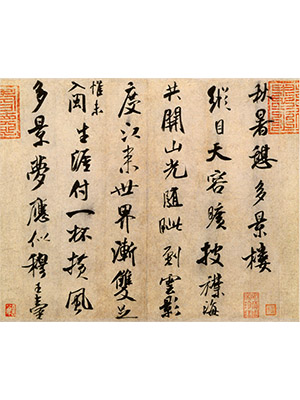 秋暑憩多景樓
縱目天容曠披襟海
共開山光隨眦到雲影
度江来世界漸雙足
惟未
闊生涯付一杯橫風
多景夢應似穆王臺